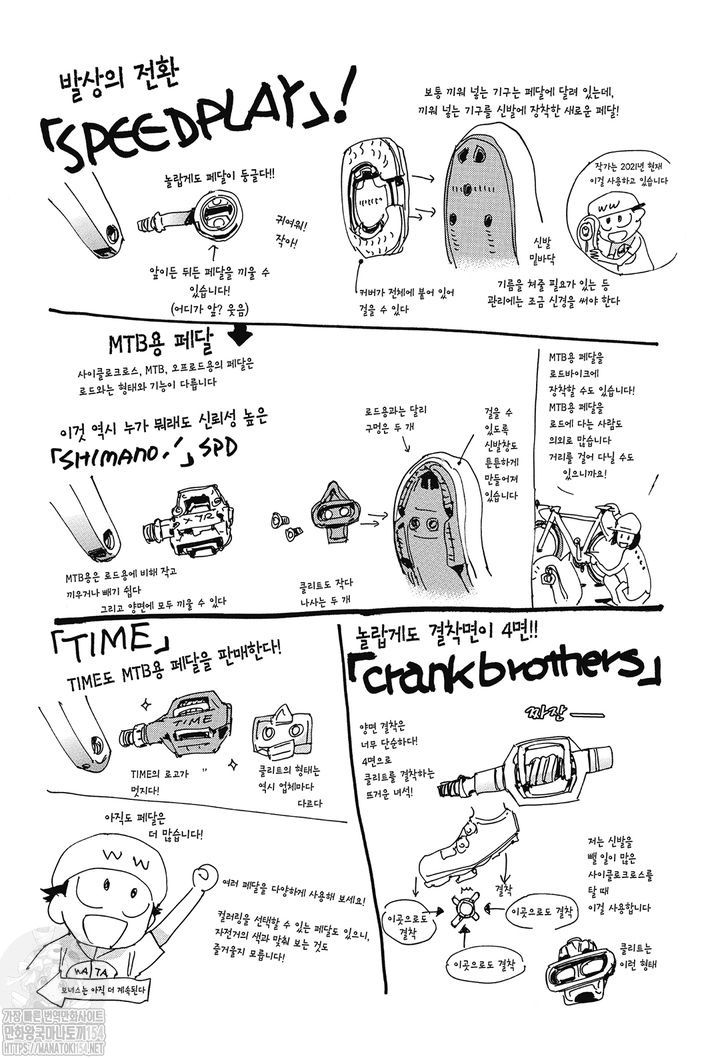 발상의 전환
「SPEEDPLAY」!
보통 끼워 넣는 기구는 페달에 달려 있는데,
끼워 넣는 기구를 신발에 장착한 새로운 페달!
놀랍게도 페달이 둥글다!!
귀여워!
작아!
앞이든 뒤든 페달을 끼울 수
있습니다!
(어디가 앞? 웃음)
커버가 전체에 붙어 있어
걸을 수 있다
신발
밑바닥
작가는 2021년 현재
이걸 사용하고 있습니다
W W
기름을 쳐줄 필요가 있는 등
관리에는 조금 신경을 써야 한다
MTB용 페달
사이클로크로스, MTB, 오프로드용의 페달은
로드와는 형태와 기능이 다릅니다
이것 역시 누가 뭐래도 신뢰성 높은
「SHIMANO!」SPD
XTR
MTB용은 로드용에 비해 작고
끼우거나 빼기 쉽다
그리고 양면에 모두 끼울 수 있다
클리트도 작다
나사는 두 개
로드용과는 달리
구멍은 두 개
걸을 수
있도록
신발창도
튼튼하게
만들어져
있습니다
MTB용 페달을
로드바이크에
장착할 수도 있습니다!
MTB용 페달을
로드에 다는 사람도
의외로 많습니다
거리를 걸어 다닐 수도
있으니까요!
「TIME」
TIME도 MTB용 페달을 판매한다!
TIME
TIME의 로고가
멋지다!
클리트의 형태는
역시 업체마다
다르다
놀랍게도 결착면이 4면!!
「crankbrothers」
짜잔
양면 결착은
너무 단순하다!
4면으로
클리트를 결착하는
뜨거운 녀석!
결착
이곳으로도
결착
이곳으로도 결착
이곳으로도 결착
저는 신발을
뺄 일이 많은
사이클로크로스를
탈 때
이걸 사용합니다
클리트는
이런 형태
아직도 페달은
더 많습니다!
W W
WATA
여러 페달을 다양하게 사용해 보세요!
컬러링을 선택할 수 있는 페달도 있으니,
자전거의 색과 맞춰 보는 것도
즐거울지 모릅니다!
보너스는 아직 더 계속된다
가장 빠른 번역만화사이트
만화왕국마나토끼154
HTTPS://MANATOKI154.NET